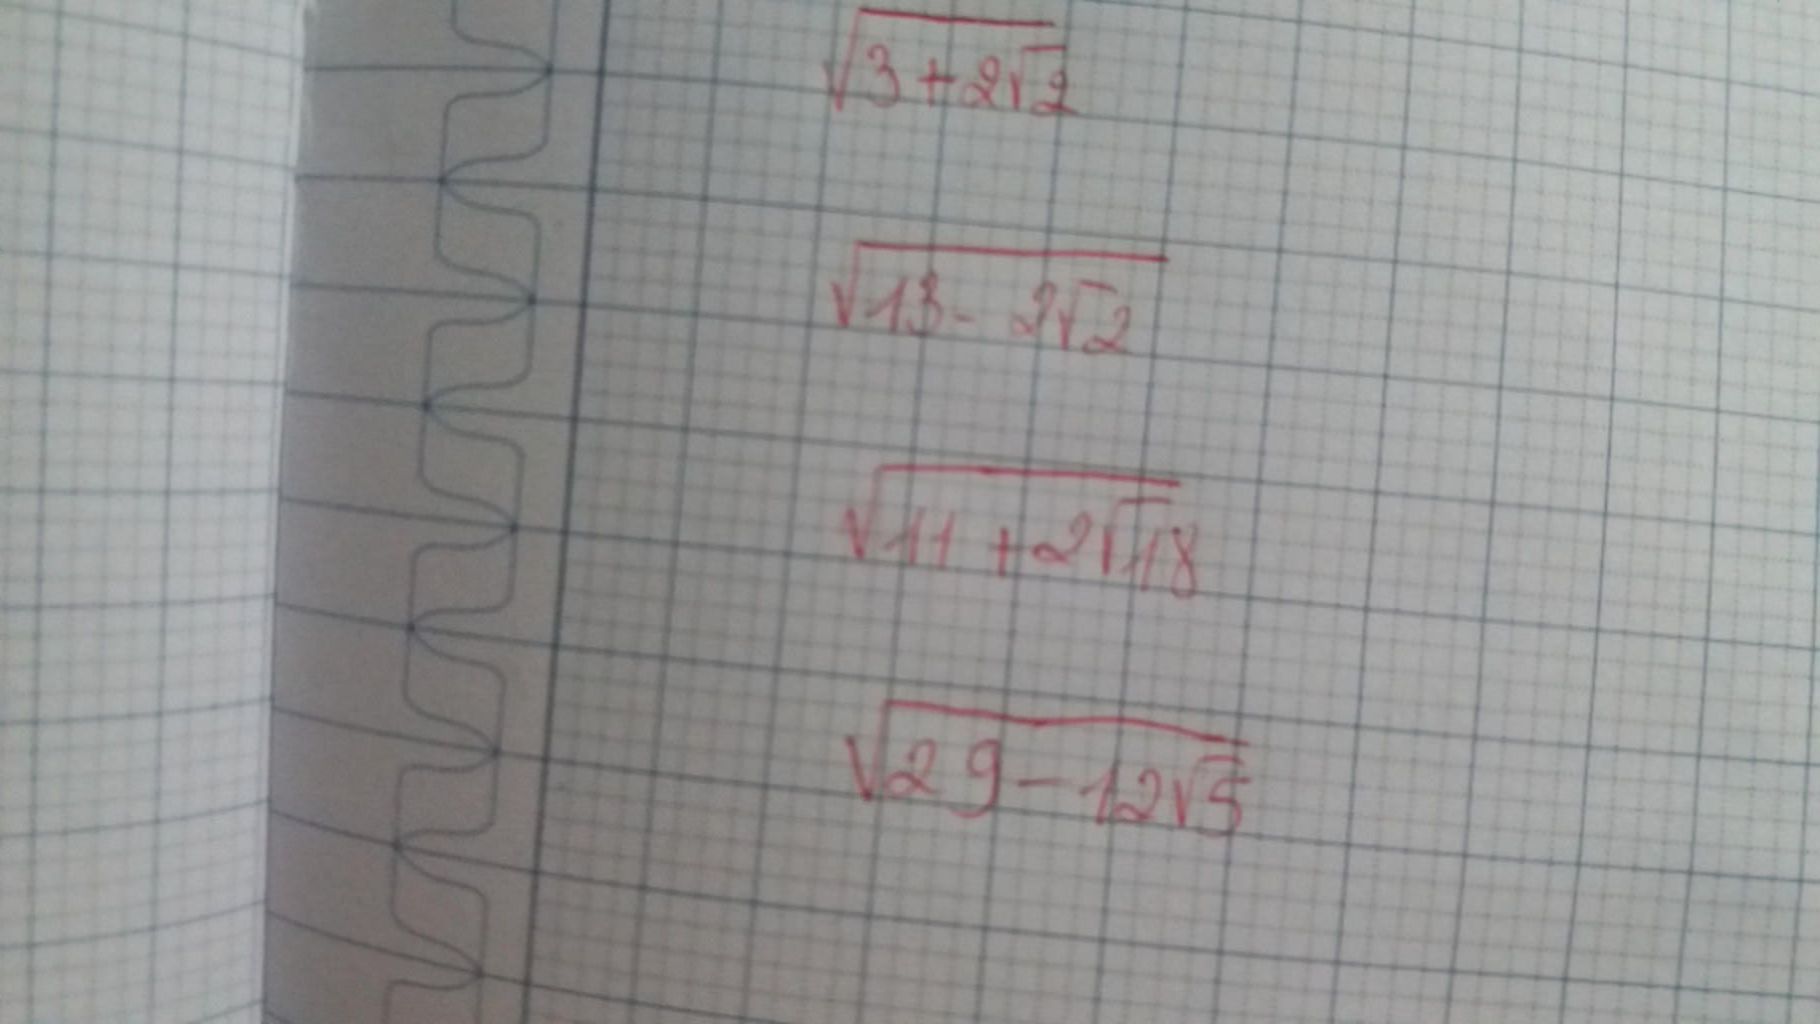 √(3+2√2)
√(13-2√2)
√(11+2√18)
√(29-12√5)